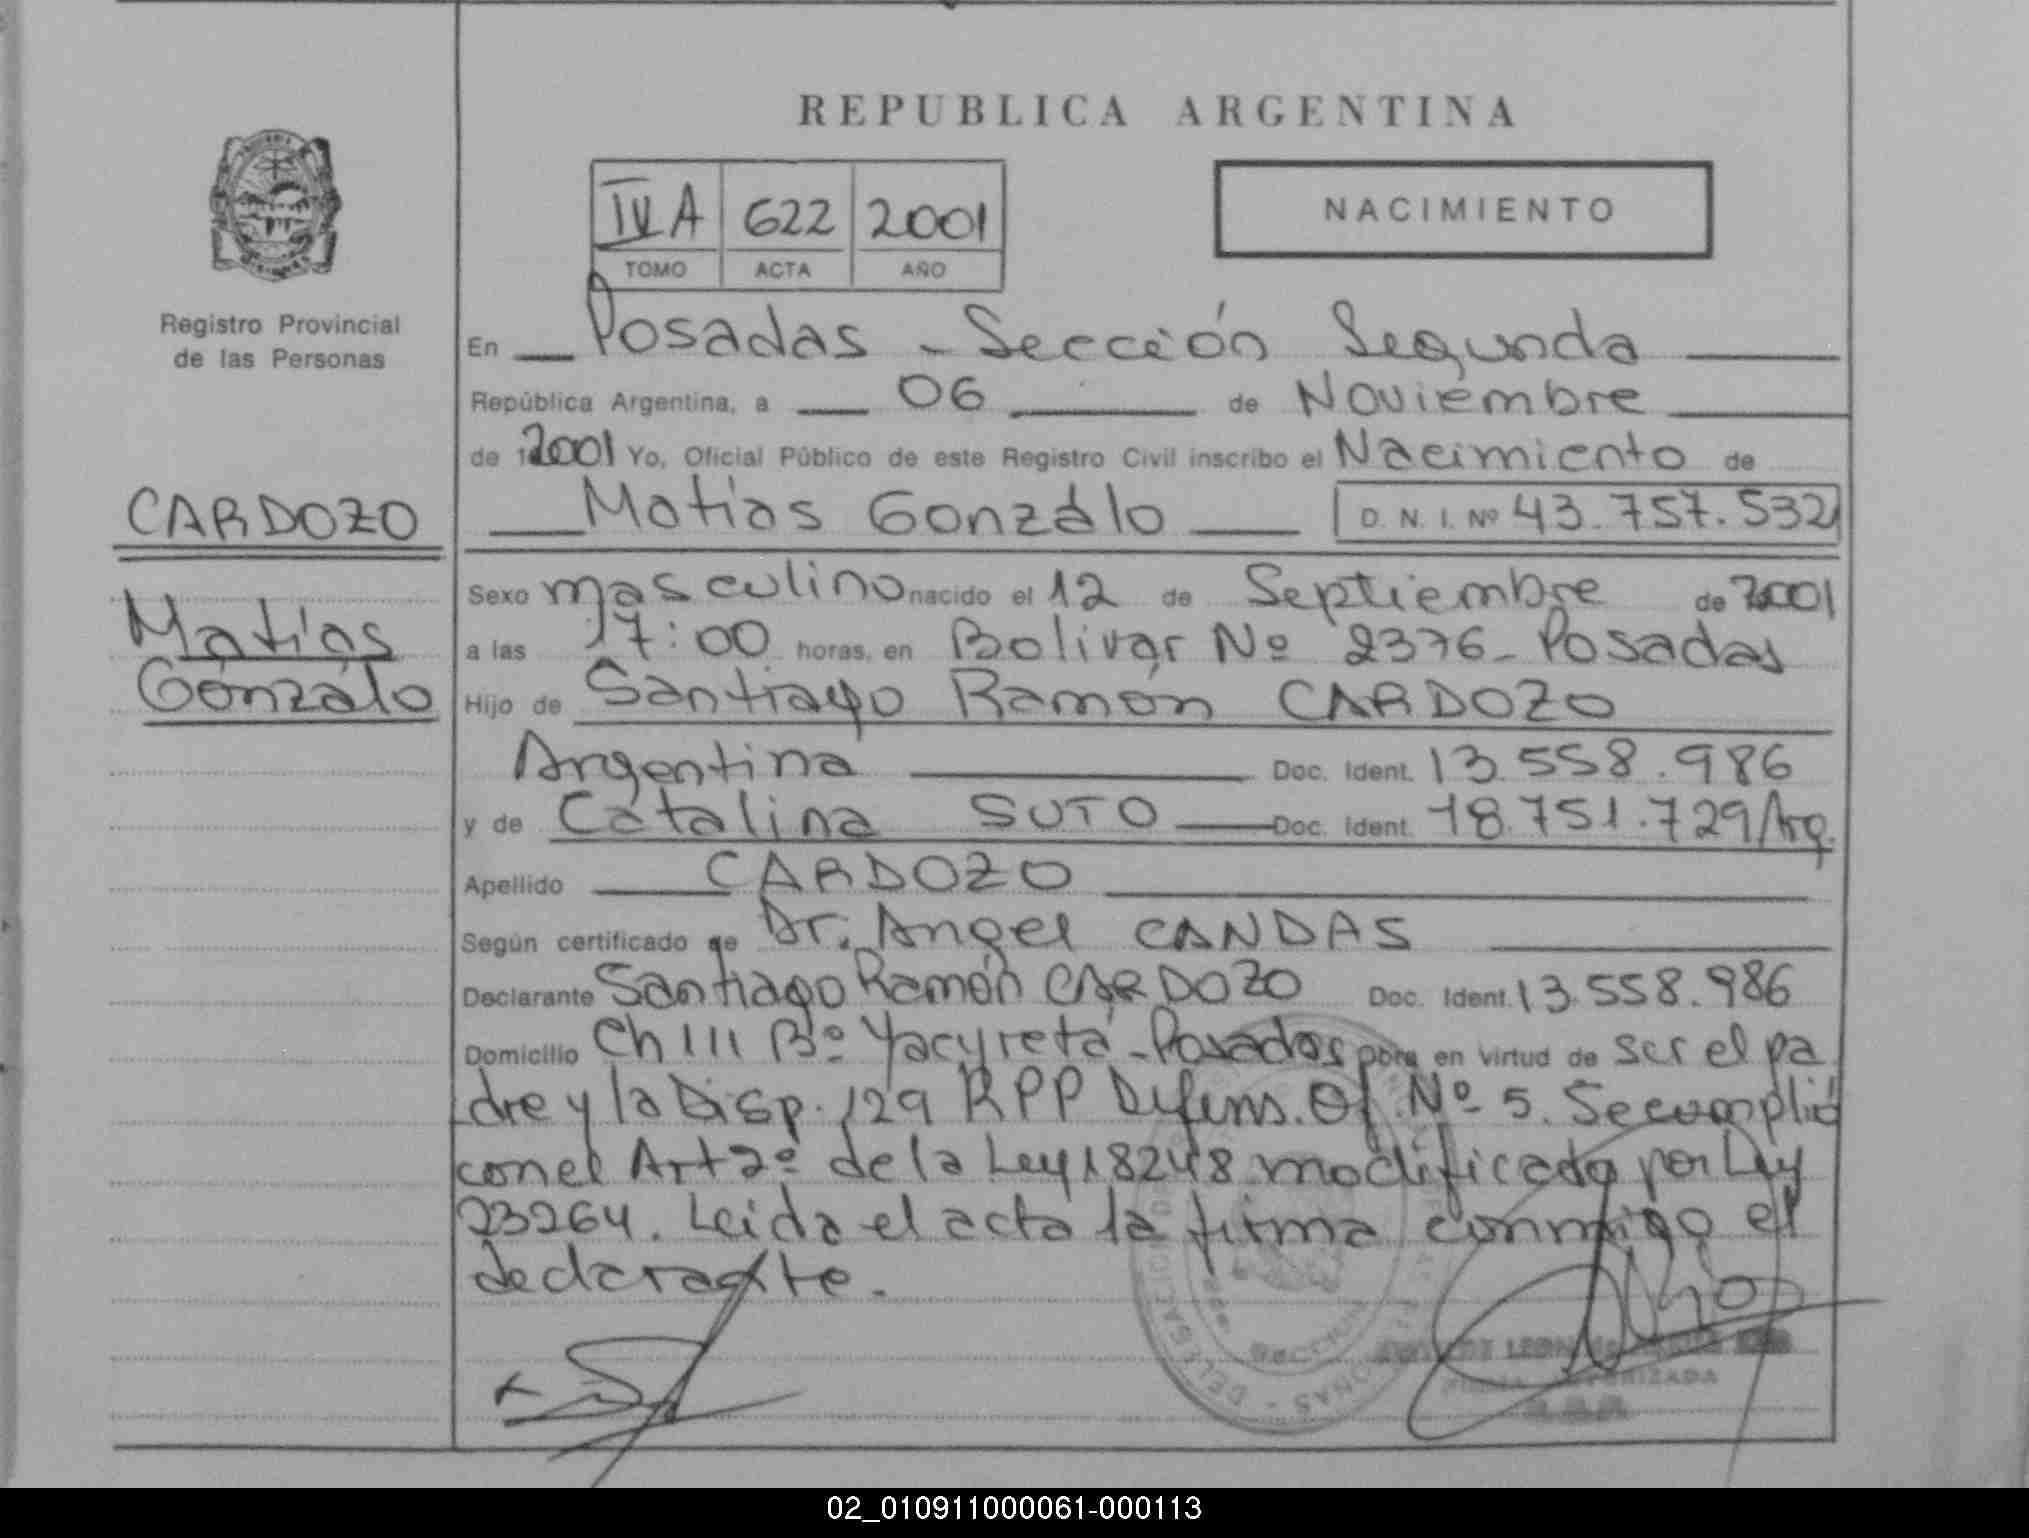 REPUBLICA ARGENTINA
IV A 622 2001
TOMO ACTA AÑO
NACIMIENTO
Registro Provincial
de las Personas
CARDOZO
Matías
Gonzálo
En Posadas - Sección Segunda
República Argentina, a 06 de Noviembre
de 2001 Yo, Oficial Público de este Registro Civil inscribo el Nacimiento de
Matías Gonzálo D. N. I. Nº 43.757.532
Sexo masculino nacido el 12 de Septiembre de 2001
a las 17:00 horas, en Bolivar Nº 2376 - Posadas
Hijo de Santiago Ramón CARDOZO
Argentina Doc. Ident. 13.558.986
y de Catalina SUTO Doc. Ident. 18.751.729/Arg.
Apellido CARDOZO
Según certificado de Dr. Angel CANDAS
Declarante Santiago Ramón CARDOZO Doc. Ident. 13.558.986
Domicilio Ch 111 Bº Yacyretá - Posadas obra en virtud de ser el pa
dre y la Disp. 129 RPP Defens. Of. Nº 5. Se cumplió
con el Art 2º de la Ley 18248 modificado por Ley
23264. Leida el acta la firma conmigo el
declarante.
02_010911000061-000113